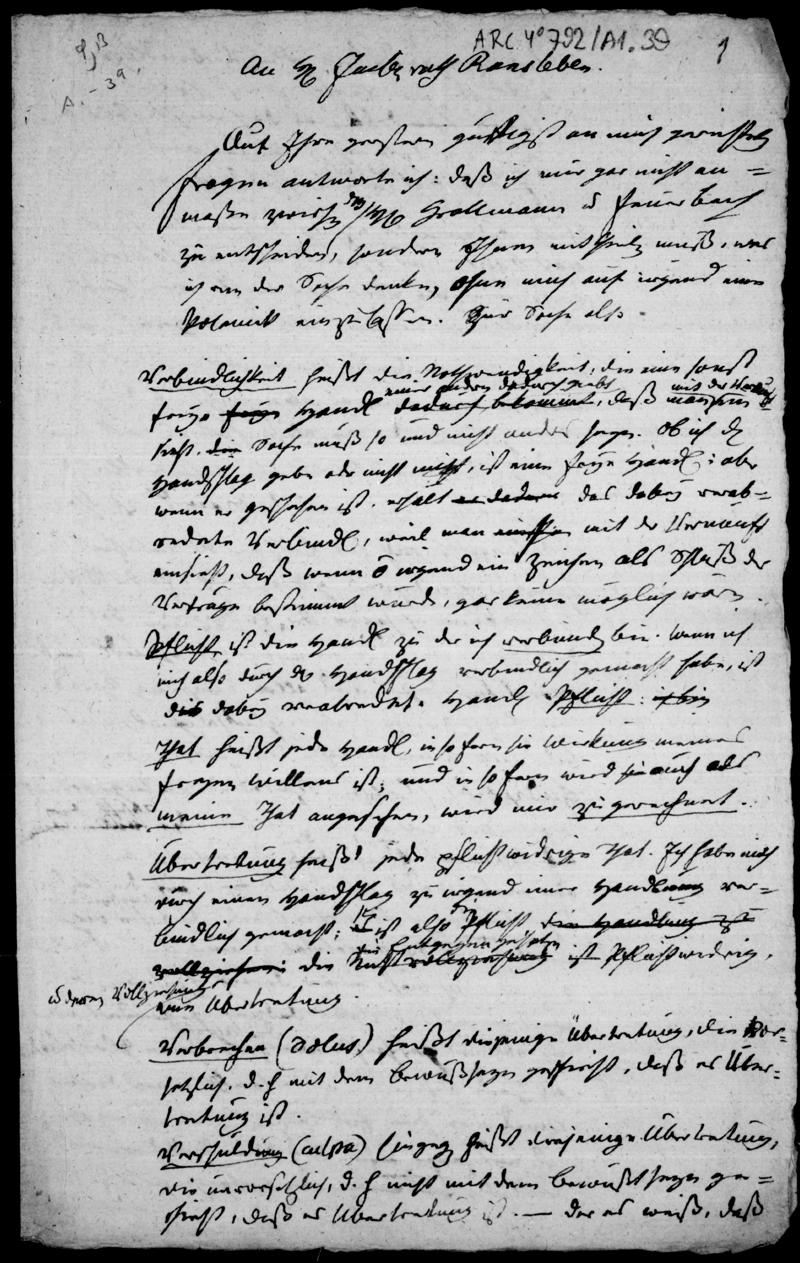 ARC 4° 792/A1.39
1
A. - 39.
An H. Ransleben.
Auf Ihre gestern gütigst an mich gerichteten
Fragen antworte ich: daß ich mir gar nicht an=
maße zwischen den H. Grollmann u Feuerbach
zu entscheiden, sondern Ihnen mittheilen muß, was
ich von der Sache denke, ohne mich auf irgend eine
Polemik einzulassen. Zur Sache also
Verbindlichkeit heißt die Nothwendigkeit, die eine sonst
freye Handl einer andern dadurch giebt, daß man mit der Vernunft
sieht, die Sache muß so und nicht anders seyn. Ob ich den
Handschlag gebe oder nicht, ist eine freye Handl: aber
wenn er geschehen ist, erhält das dabey verab=
redete Verbindl, weil man mit der Vernunft
einsieht, daß wenn irgend ein Zeichen als Schluß der
Verträge bestimmt würde, gar keine möglich wären.
Pflicht ist die Handl zu der ich verbunden bin. Wenn ich
mich also durch den Handschlag verbindlich gemacht habe, ist
die dabey verabredete Handl Pflicht.
That heißt jede Handl, in so fern sie Wirkung meines
freyen Willens ist; und in so fern wird sie auch als
meine That angesehen, wird mir zugerechnet.
Übertretung heißt jede pflichtwidrige That. Ich habe mich
durch einen Handschlag zu irgend einer Handlung ver=
bindlich gemacht; es ist also Pflicht die Handlung zu
vollziehen: die entgegengesetzte ist Pflichtwidrig,
u deren Vollziehung
eine Übertretung.
Verbrechen (dolus) heißt diejenige Übertretung, die vor=
setzlich, d. h mit dem Bewußtseyn geschieht, daß es Über=
tretung ist.
Verschuldung (culpa) hingegen heißt diejenige Übertretung,
die unvorsetzlich, d. h nicht mit dem Bewußtseyn ge=
schieht, daß es Übertretung ist. — der es weiß, daß